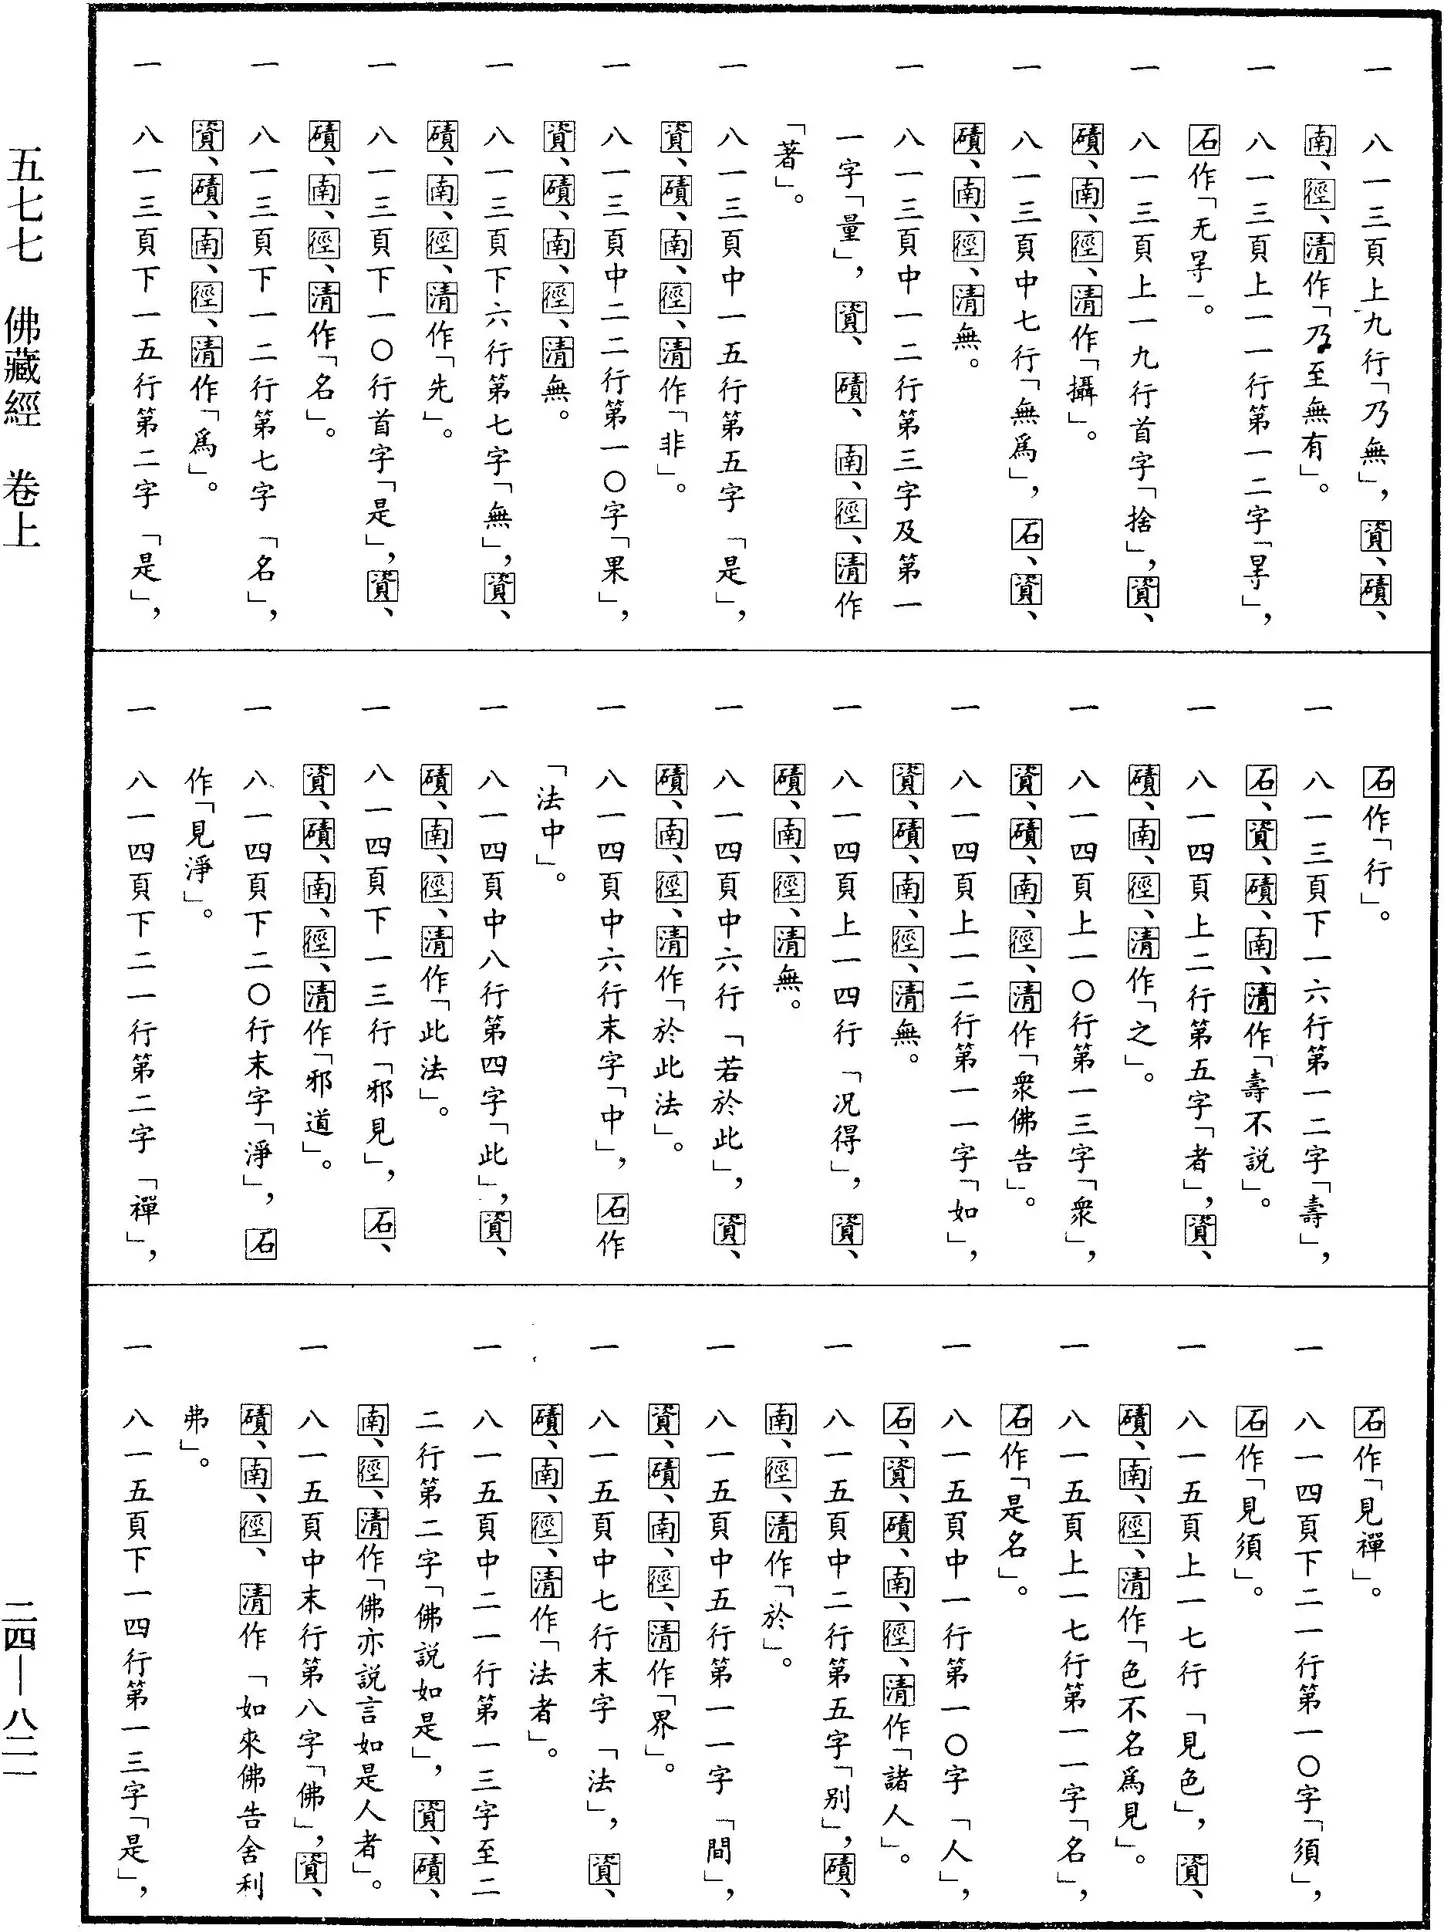 一　八一三頁上九行「乃無」，資、磧、
南、徑、清作「乃至無有」。
一　八一三頁上一一行第一二字「㝵」，
石作「无㝵」。
一　八一三頁上一九行首字「捨」，資、
磧、南、徑、清作「攝」。
一　八一三頁中七行「無爲」，石、資、
磧、南、徑、清無。
一　八一三頁中一二行第三字及第一
一字「量」，資、磧、南、徑、清作
「著」。
一　八一三頁中一五行第五字「是」，
資、磧、南、徑、清作「非」。
一　八一三頁中二二行第一〇字「果」，
資、磧、南、徑、清無。
一　八一三頁下六行第七字「無」，資、
磧、南、徑、清作「先」。
一　八一三頁下一〇行首字「是」，資、
磧、南、徑、清作「名」。
一　八一三頁下一二行第七字「名」，
資、磧、南、徑、清作「爲」。
一　八一三頁下一五行第二字「是」，
石作「行」。
一　八一三頁下一六行第一二字「壽」，
石、資、磧、南、清作「壽不説」。
一　八一四頁上二行第五字「者」，資、
磧、南、徑、清作「之」。
一　八一四頁上一〇行第一三字「衆」，
資、磧、南、徑、清作「衆佛告」。
一　八一四頁上一二行第一一字「如」，
資、磧、南、徑、清無。
一　八一四頁上一四行「況得」，資、
磧、南、徑、清無。
一　八一四頁中六行「若於此」，資、
磧、南、徑、清作「於此法」。
一　八一四頁中六行末字「中」，石作
「法中」。
一　八一四頁中八行第四字「此」，資、
磧、南、徑、清作「此法」。
一　八一四頁下一三行「邪見」，石、
資、磧、南、徑、清作「邪道」。
一　八一四頁下二〇行末字「淨」，石
作「見淨」。
一　八一四頁下二一行第二字「禪」，
石作「見禪」。
一　八一四頁下二一行第一〇字「須」，
石作「見須」。
一　八一五頁上一七行「見色」，資、
磧、南、徑、清作「色不名爲見」。
一　八一五頁上一七行第一一字「名」，
石作「是名」。
一　八一五頁中一行第一〇字「人」，
石、資、磧、南、徑、清作「諸人」。
一　八一五頁中二行第五字「别」，磧、
南、徑、清作「於」。
一　八一五頁中五行第一一字「間」，
資、磧、南、徑、清作「界」。
一　八一五頁中七行末字「法」，資、
磧、南、徑、清作「法者」。
一　八一五頁中二一行第一三字至二
二行第二字「佛説如是」，資、磧、
南、徑、清作「佛亦説言如是人者」。
一　八一五頁中末行第八字「佛」，資、
磧、南、徑、清作「如來佛告舍利
弗」。
一　八一五頁下一四行第一三字「是」，
五七七　佛藏經　卷上
二四—八二一